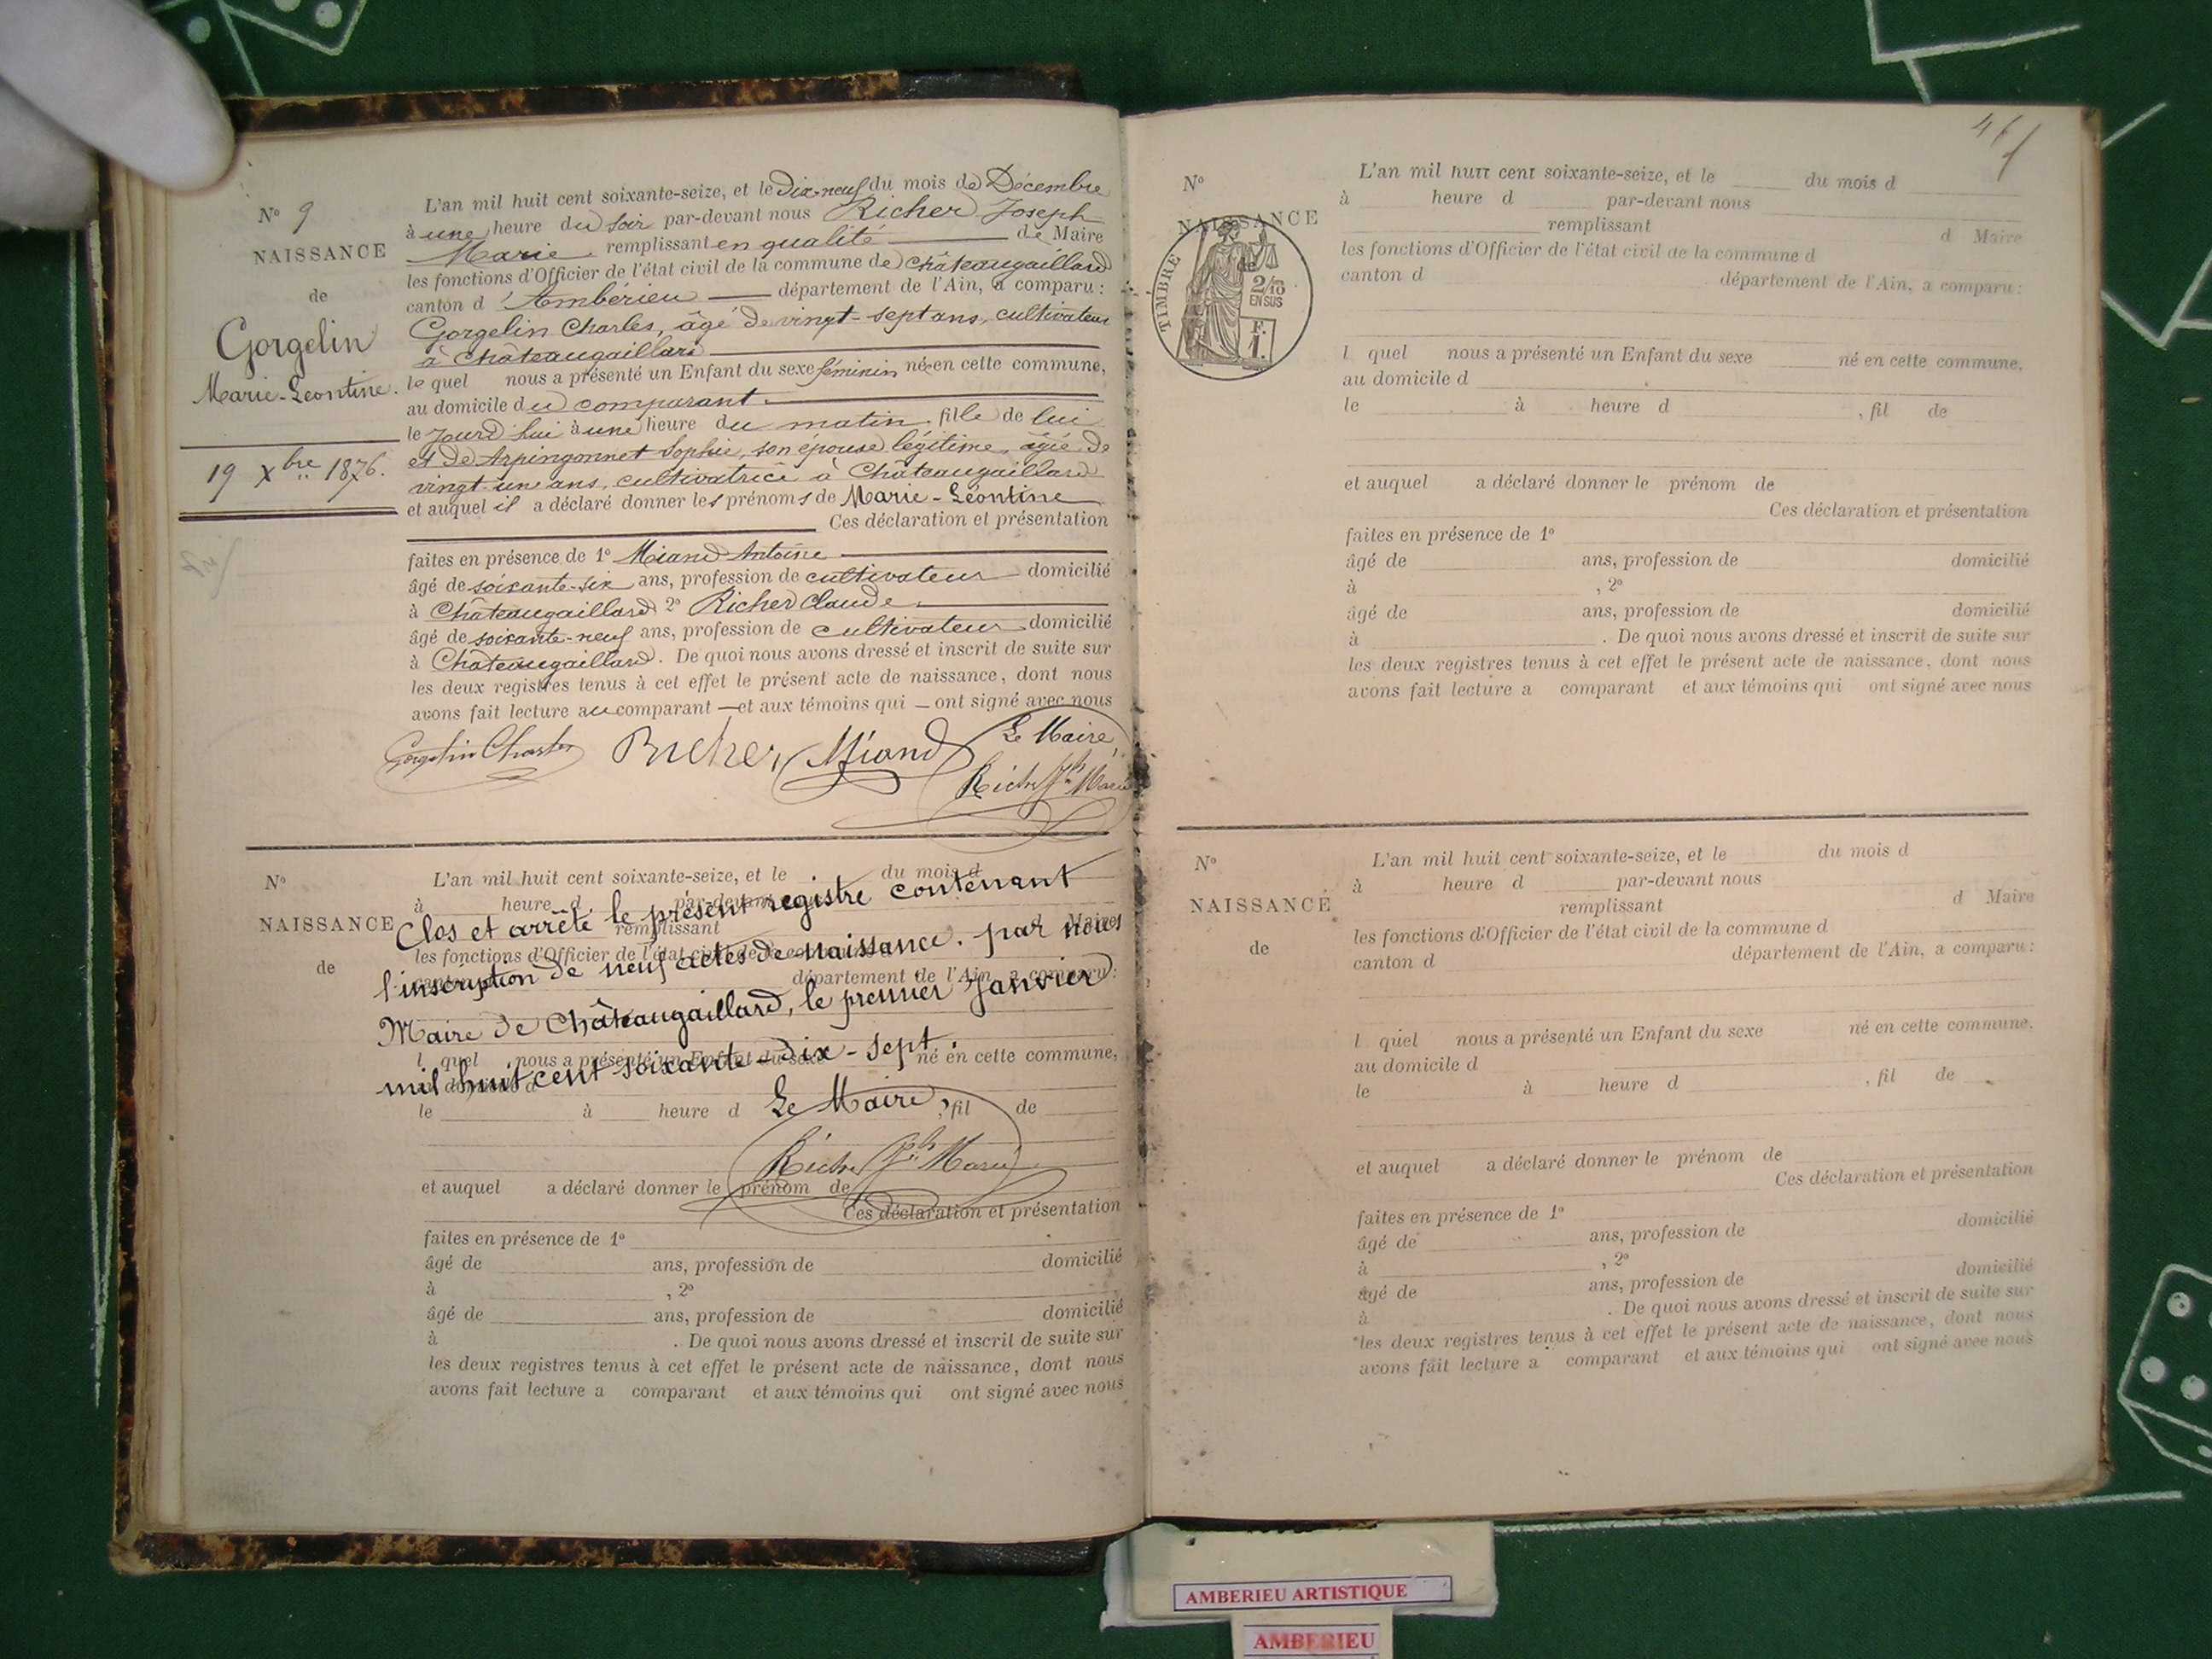 N° 9
NAISSANCE
de
Gorgelin
Marie-Léontine.
19 Xbre 1876.
L'an mil huit cent soixante-seize, et le Dix-neuf du mois de Décembre
à une heure du soir par-devant nous Richer Joseph
Marie remplissant en qualité de Maire
les fonctions d'Officier de l'état civil de la commune de Châteaugaillard
canton d'Ambérieu département de l'Ain, a comparu :
Gorgelin Charles, âgé de vingt-sept ans, cultivateur
à Châteaugaillard
le quel nous a présenté un Enfant du sexe féminin née en cette commune,
au domicile du comparant.
le Jourd'hui à une heure du matin, fille de lui
et de Arpingonnet Sophie, son épouse légitime, âgée de
vingt-un ans, cultivatrice à Châteaugaillard
et auquel il a déclaré donner les prénoms de Marie-Léontine
Ces déclaration et présentation
faites en présence de 1° Miand Antoine
âgé de soixante-six ans, profession de cultivateur domicilié
à Châteaugaillard 2° Richer Claude
âgé de soixante-neuf ans, profession de cultivateur domicilié
à Châteaugaillard. De quoi nous avons dressé et inscrit de suite sur
les deux registres tenus à cet effet le présent acte de naissance, dont nous
avons fait lecture au comparant et aux témoins qui ont signé avec nous
Gorgelin Charles Richer Miand Le Maire,
Richer Jh Marie
N°
NAISSANCE
de
L'an mil huit cent soixante-seize, et le du mois d
à heure d par-devant
Clos et arrêté le présent registre contenant
remplissant d Maire
les fonctions d'Officier de l'état civil de la commune
l'inscription de neuf actes de naissance. par nous
département de l'Ain, a comparu :
Maire de Châteaugaillard, le premier Janvier
l quel nous a présenté un Enfant du sexe né en cette commune,
mil huit cent soixante-dix-sept.
le à heure d Le Maire, fil de
Richer Jh Marie
et auquel a déclaré donner le prénom de
Ces déclaration et présentation
faites en présence de 1°
âgé de ans, profession de domicilié
à , 2°
âgé de ans, profession de domicilié
à . De quoi nous avons dressé et inscrit de suite sur
les deux registres tenus à cet effet le présent acte de naissance, dont nous
avons fait lecture a comparant et aux témoins qui ont signé avec nous
N°
NAISSANCE
de
TIMBRE
2/10
EN SUS
F.
1.
L'an mil huit cent soixante-seize, et le du mois d
à heure d par-devant nous
remplissant d Maire
les fonctions d'Officier de l'état civil de la commune d
canton d département de l'Ain, a comparu :
l quel nous a présenté un Enfant du sexe né en cette commune,
au domicile d
le à heure d , fil de
et auquel a déclaré donner le prénom de
Ces déclaration et présentation
faites en présence de 1°
âgé de ans, profession de domicilié
à , 2°
âgé de ans, profession de domicilié
à . De quoi nous avons dressé et inscrit de suite sur
les deux registres tenus à cet effet le présent acte de naissance, dont nous
avons fait lecture a comparant et aux témoins qui ont signé avec nous
N°
NAISSANCE
de
L'an mil huit cent soixante-seize, et le du mois d
à heure d par-devant nous
remplissant d Maire
les fonctions d'Officier de l'état civil de la commune d
canton d département de l'Ain, a comparu :
l quel nous a présenté un Enfant du sexe né en cette commune,
au domicile d
le à heure d , fil de
et auquel a déclaré donner le prénom de
Ces déclaration et présentation
faites en présence de 1°
âgé de ans, profession de domicilié
à , 2°
âgé de ans, profession de domicilié
à . De quoi nous avons dressé et inscrit de suite sur
les deux registres tenus à cet effet le présent acte de naissance, dont nous
avons fait lecture a comparant et aux témoins qui ont signé avec nous
AMBERIEU ARTISTIQUE
AMBERIEU